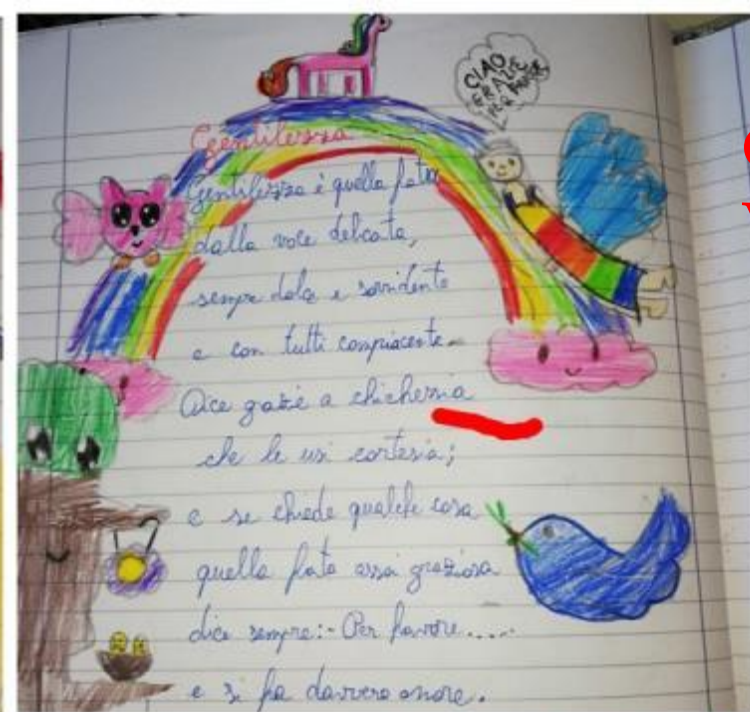 CIAO
GRAZIE
PER FAVORE
Gentilezza
Gentilezza è quella fata
dalla voce delicata,
sempre dolce e sorridente
e con tutti compiacente.
Dice grazie a chichessia
che le usi cortesia;
e se chiede qualche cosa
quella fata assai graziosa
dice sempre:- Per favore.....
e si fa davvero onore.